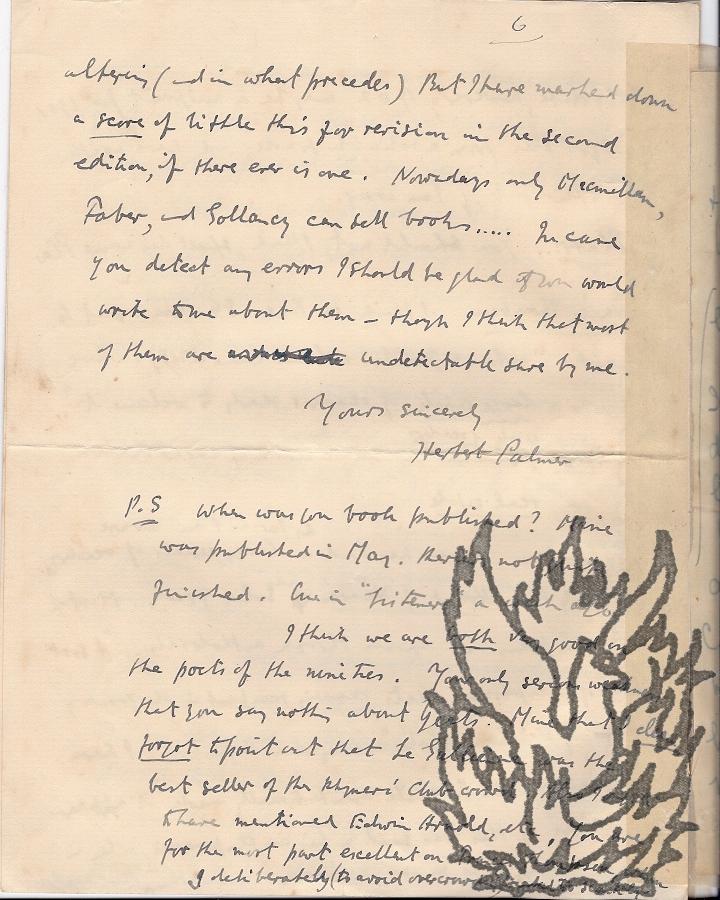 6
altering (and in what precedes) But I have marked down
a score of little things for revision in the second
edition, if there ever is one. Nowadays only Macmillan,
Faber, and Gollancz can sell books..... In case
you detect any errors I should be glad if you would
write to me about them – though I think that most
of them are undetectable save by me.
Yours sincerely
Herbert Palmer
P.S When was your book published? Mine
was published in May. Reviews not
finished. One in "Listener" a
I think we are both very good on
the poets of the nineties. Your only serious weakness
that you say nothing about Yeats. Mine that I
forgot to point out that Le Gallienne was the
best seller of the Rhymers' Club crowd
to have mentioned Edwin Arnold, etc. You are
for the most part excellent on
I deliberately (to avoid overcrowding